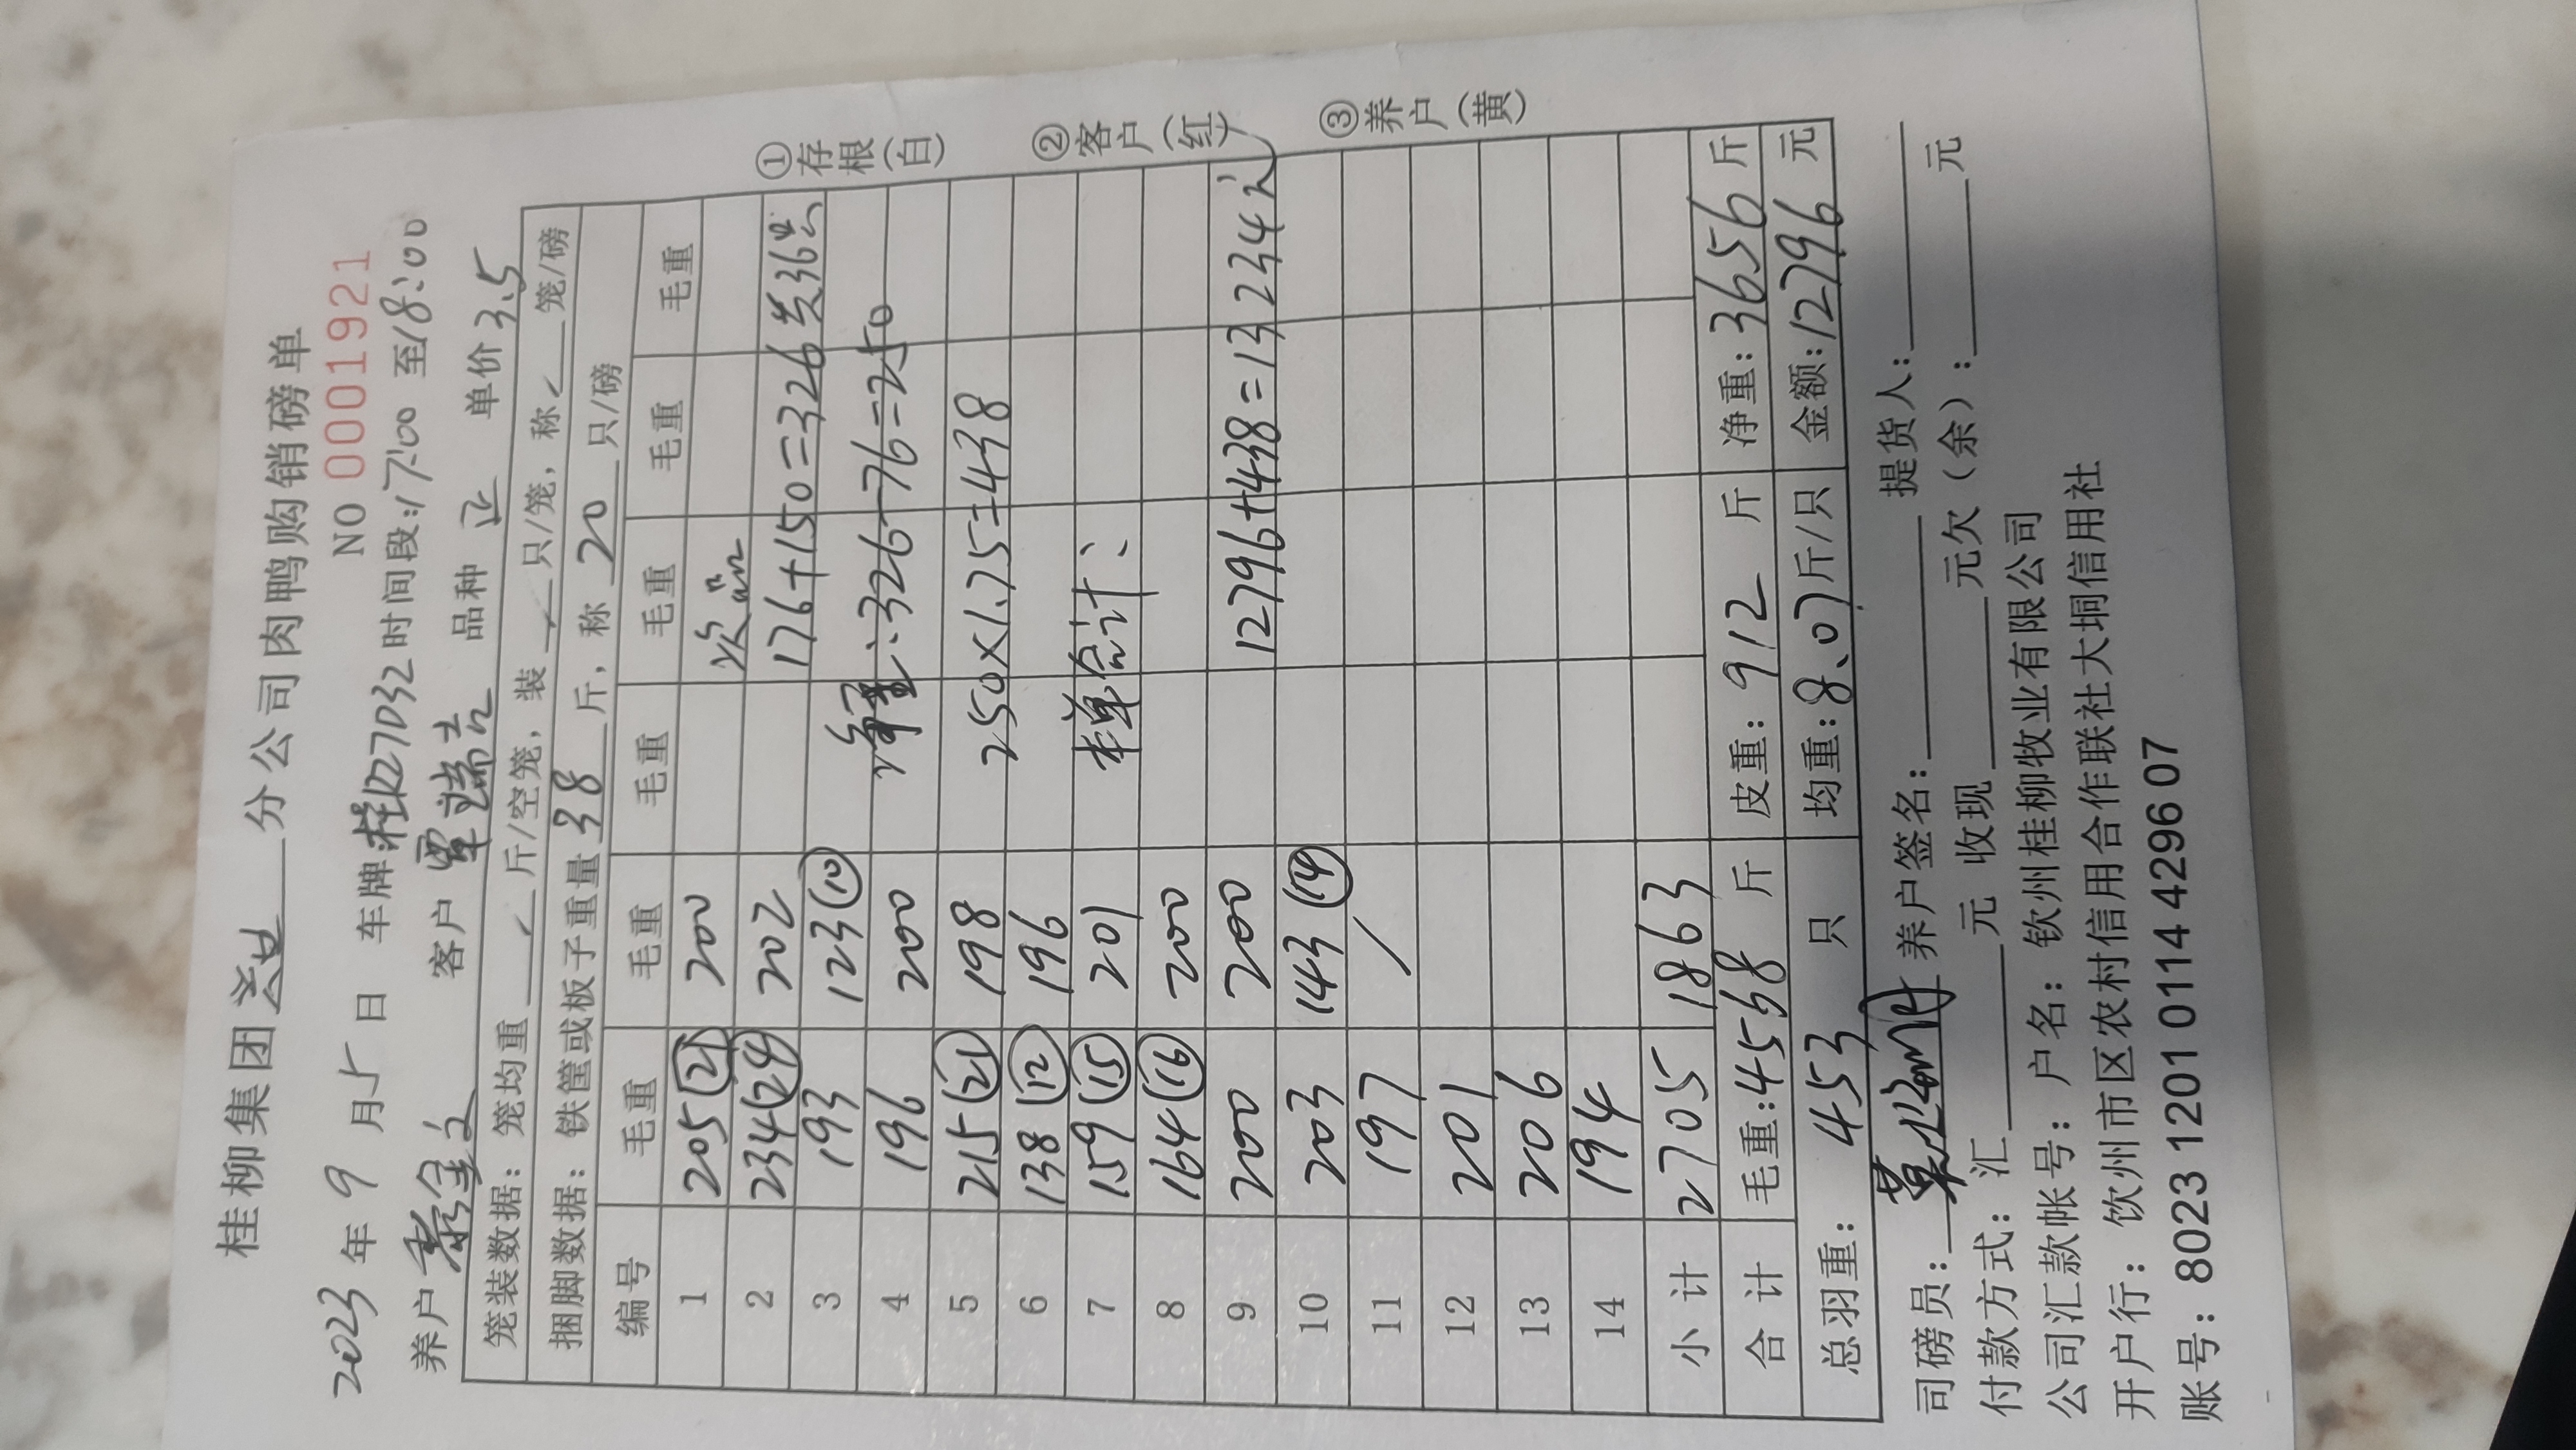 桂柳集团 分公司肉鸭购销磅单
NO 0001921
2023年 9 月 5 日 车牌:桂227D32 时间段:17:00 至18:00
养户 客户 覃瑞吉 品种 正 单价 3.5
笼装数据: 笼均重 斤/空笼, 装 只/笼, 称 笼/磅
捆脚数据: 铁筐或板子重量 38 斤, 称 20 只/磅
编号 毛重 毛重 毛重 毛重 毛重 毛重
1 205(21) 200 次品
2 234(24) 202 176+150=326 共36只
3 193 123(10)
4 196 200 净重:326-76=250
5 215(21) 198 250×1.75=438
6 138(12) 196
7 159(15) 201 样单总计:
8 164(16) 200
9 200 200 12796+438=13234元
10 203 143(14)
11 197 /
12 201
13 206
14 194
小计 2705 1863
合计 毛重:4568 斤 皮重: 912 斤 净重: 3656 斤
总羽重: 453 只 均重:8.07斤/只 金额:12796 元
①存根(白) ②客户(红) ③养户(黄)
司磅员: 养户签名: 提货人:
付款方式: 汇 元 收现 元欠(余): 元
公司汇款帐号: 户名: 钦州桂柳牧业有限公司
开户行: 钦州市区农村信用合作联社大垌信用社
账号: 8023 1201 0114 4296 07